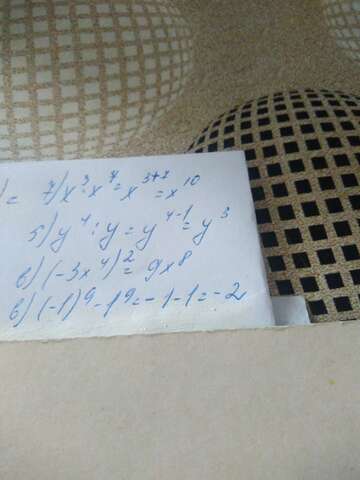 ) = 7) x³ · x⁷ = x³⁺⁷ = x¹⁰
5) y⁴ : y = y⁴⁻¹ = y³
6) (-3x⁴)² = 9x⁸
в) (-1)⁹ - 1⁹ = -1 - 1 = -2